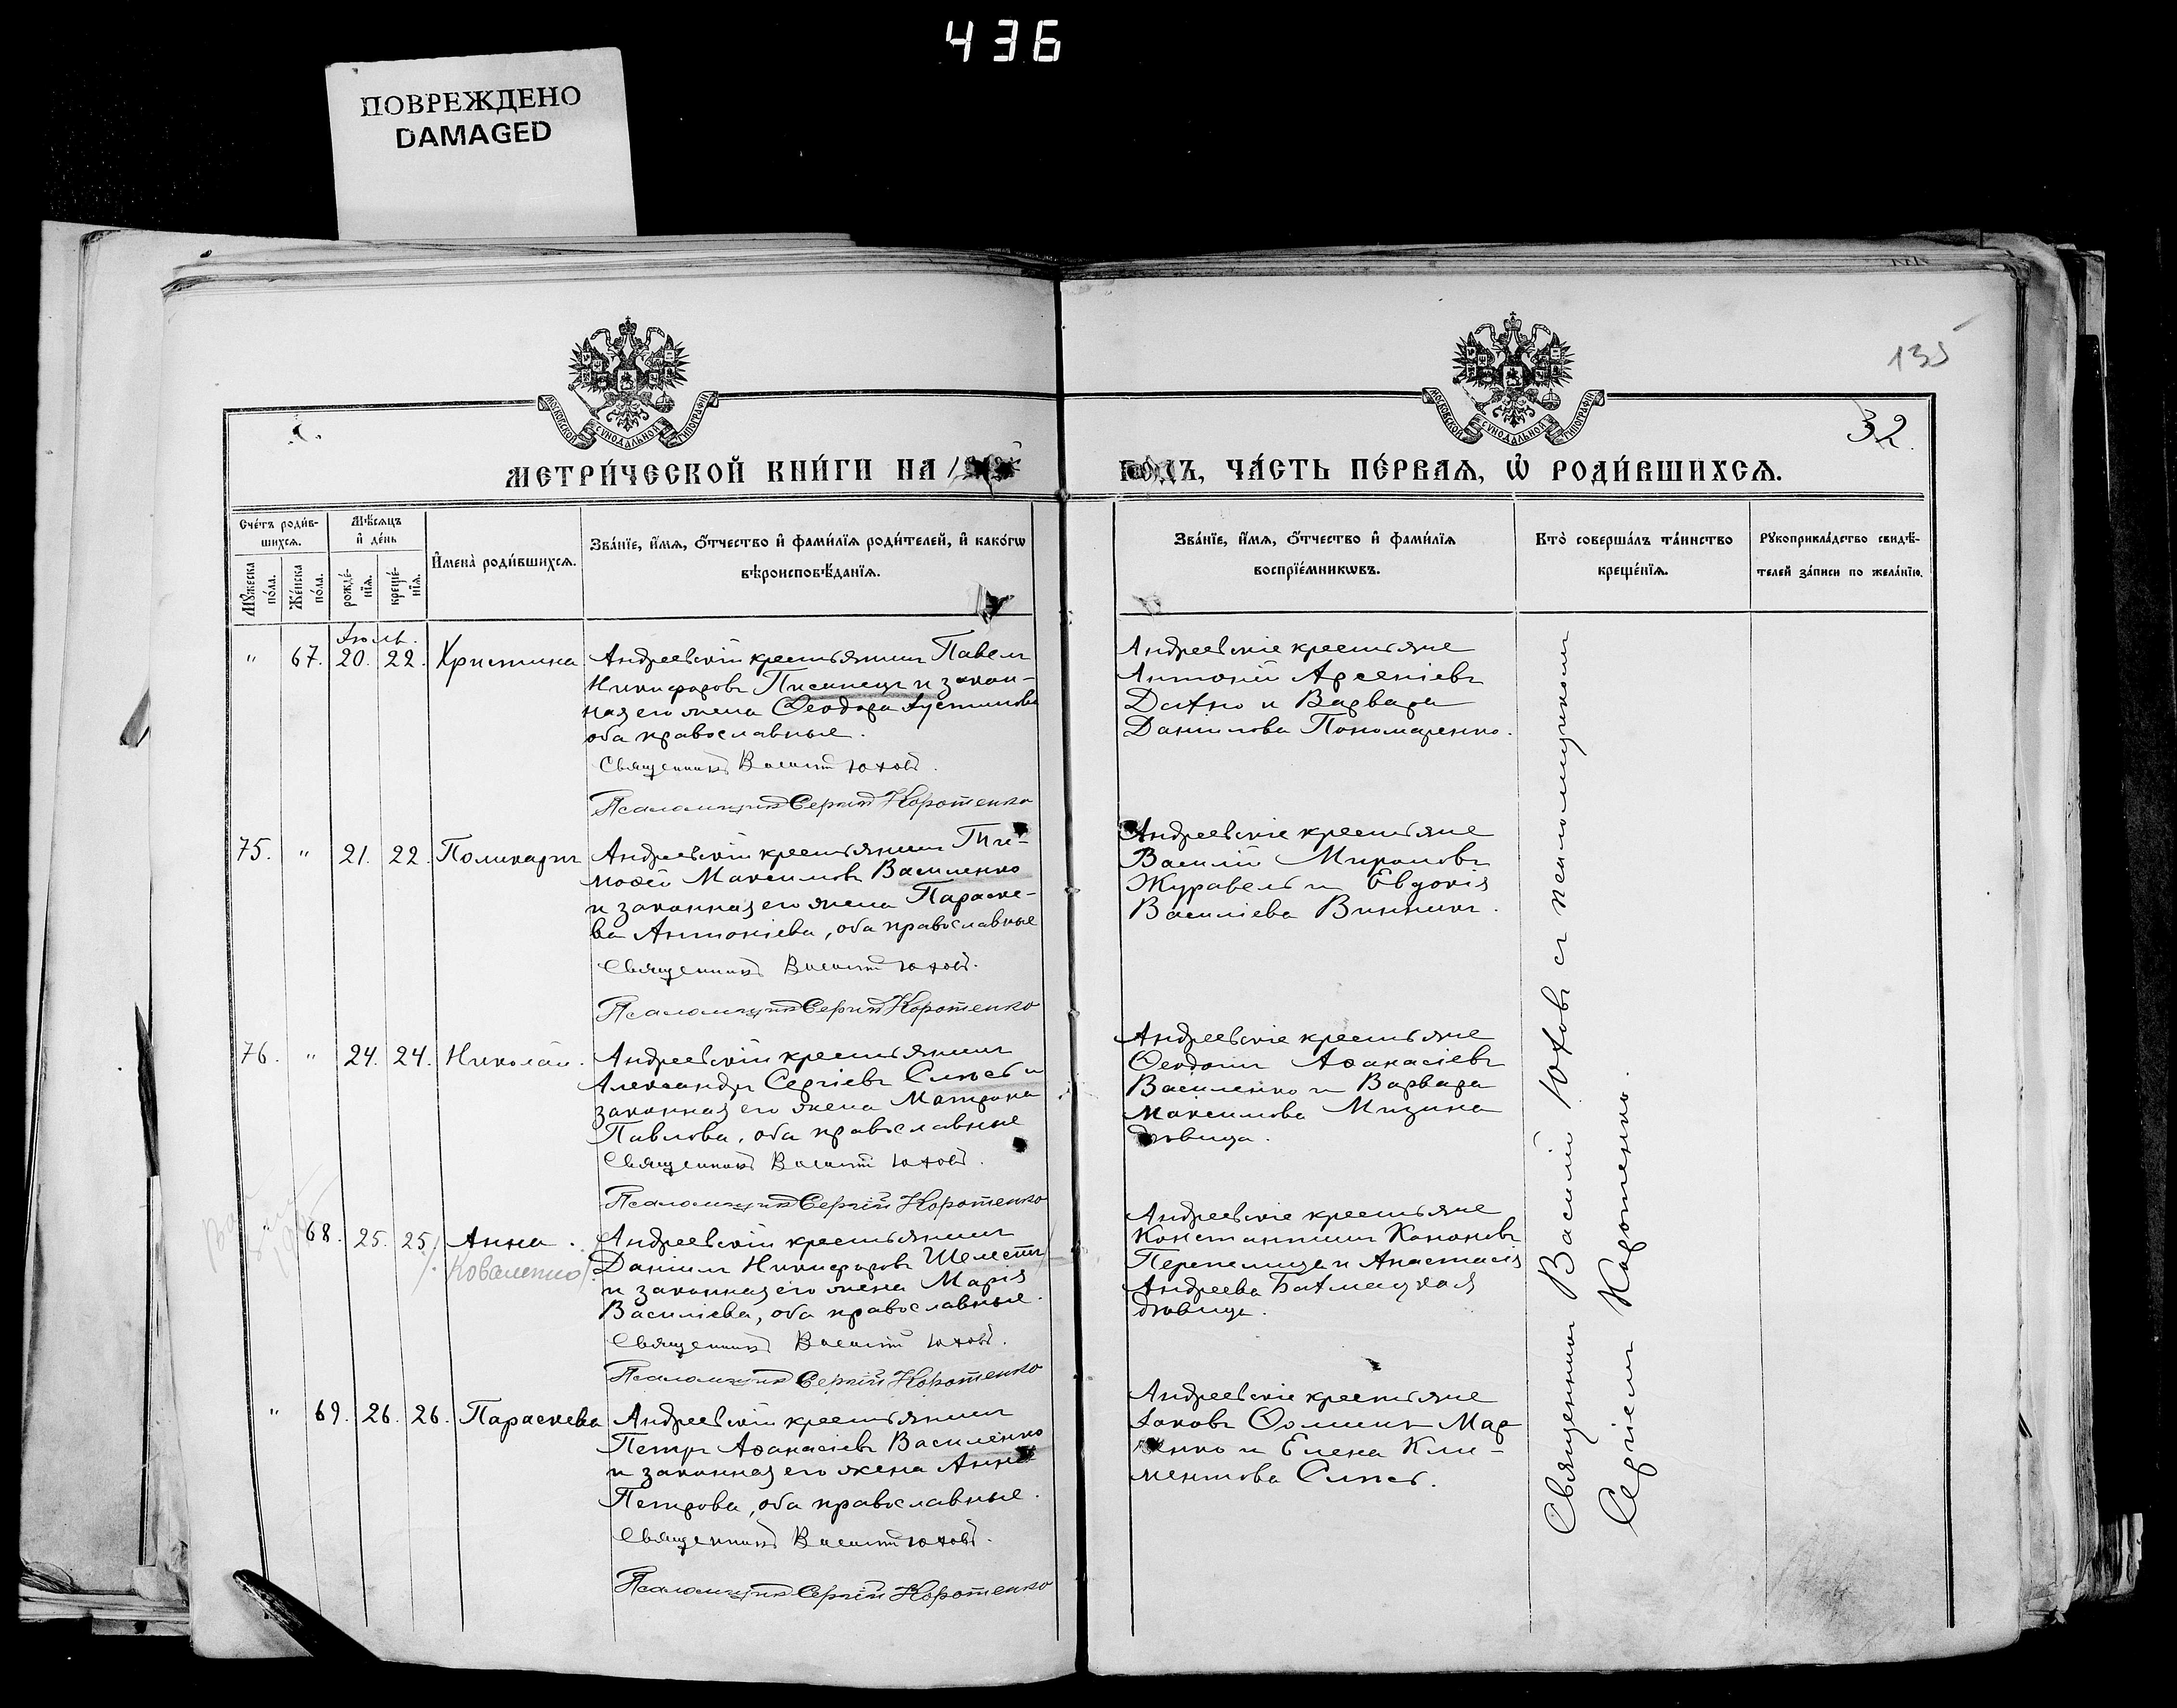 436
ПОВРЕЖДЕНО
DAMAGED
135
32.
МОСКОВСКОЙ СѴНОДАЛЬНОЙ ТИПОГРАФІИ
МОСКОВСКОЙ СѴНОДАЛЬНОЙ ТИПОГРАФІИ
МЕТРИ́ЧЕСКОЙ КНИ́ГИ НА
ГОДЪ, ЧА́СТЬ ПЕ́РВАѦ, Ѡ҆ РОДИ́ВШИХСѦ.
Сче́тъ роди́в-
шихсѧ.
Мѣ́сѧцъ
и҆ де́нь
Мꙋ́жеска по́ла.
Же́нска по́ла.
рожде́-
нїѧ.
креще́-
нїѧ.
И҆мена̀ роди́вшихсѧ.
Зва́нїе, и҆́мѧ, ѻ҆́тчество и҆ фами́лїѧ роди́телей, и҆ како́гѡ
вѣроисповѣ́данїѧ.
Зва́нїе, и҆́мѧ, ѻ҆́тчество и҆ фами́лїѧ
воспрїе́мникѡвъ.
Кто̀ соверша́лъ та́инство
креще́нїѧ.
Рꙋкоприкла́дство свидѣ́-
телей за́писи по жела́нїю.
Іюль.
" 67. 20. 22. Христина
Андреевскій крестьянинъ Павелъ
Никифоровъ Писанецъ и закон-
ная его жена Ѳеодора Іустинова
оба православные.
Священникъ Василій Юховъ.
Псаломщикъ Сергій Коротенко
Андреевскіе крестьяне
Антоній Арсеніевъ
Дахно и Варвара
Даніилова Пономаренко.
75. " 21. 22. Поликарпъ
Андреевскій крестьянинъ Ти-
моѳей Максимовъ Василенко
и законная его жена Параске-
ва Антоніева, оба православные
Священникъ Василій Юховъ.
Псаломщикъ Сергій Коротенко
Андреевскіе крестьяне
Василій Мироновъ
Журавель и Евдокія
Василіева Винникъ.
76. " 24. 24. Николай.
Андреевскій крестьянинъ
Александръ Сергіевъ Слюсь и
законная его жена Матрона
Павлова, оба православные
Священникъ Василій Юховъ.
Псаломщикъ Сергій Коротенко
Андреевскіе крестьяне
Ѳеодоій Аѳанасіевъ
Василенко и Варвара
Максимова Мизина
дѣвица.
" 68. 25. 25. Анна.
Коваленко
Андреевскій крестьянинъ
Даніилъ Никифоровъ Шелестъ
и законная его жена Марія
Василіева, оба православные.
Священникъ Василій Юховъ.
Псаломщикъ Сергій Коротенко
Андреевскіе крестьяне
Константинъ Кононовъ
Перепелица и Анастасія
Андреева Бахмацкая
дѣвица.
" 69. 26. 26. Параскева
Андреевскій крестьянинъ
Петръ Аѳанасіевъ Василенко
и законная его жена Анна
Петрова, оба православные.
Священникъ Василій Юховъ.
Псаломщикъ Сергій Коротенко
Андреевскіе крестьяне
Іаковъ Ѳоминъ Мар
енко и Елена Кли-
ментова Слюсь.
Священникъ Василій Юховъ съ псаломщикомъ
Сергіемъ Коротенко.